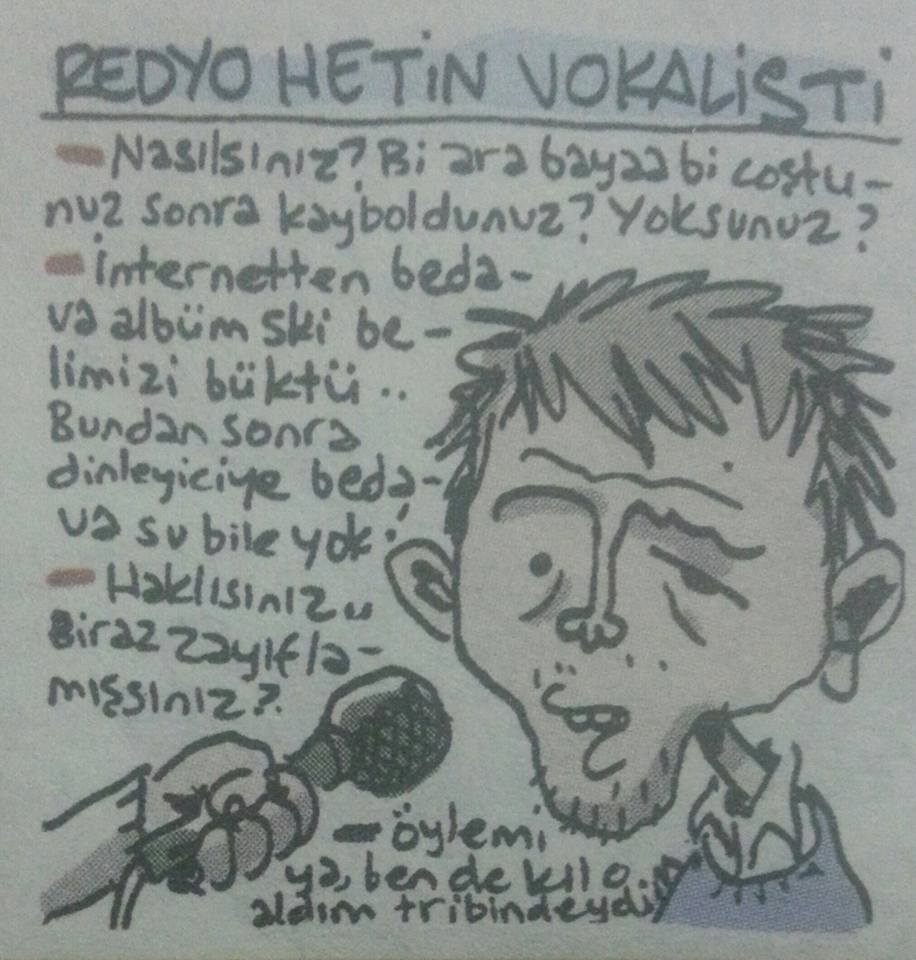 REDYO HETİN VOKALİSTİ
- Nasılsınız? Bi ara bayaa bi coştu-
nuz sonra kayboldunuz? Yoksunuz?
- İnternetten beda-
va albüm ski be-
limizi büktü..
Bundan sonra
dinleyiciye beda-
va su bile yok!
- Haklısınız..
Biraz zayıfla-
mışsınız?
- öylemi
ya, ben de kilo
aldım tribindeydim